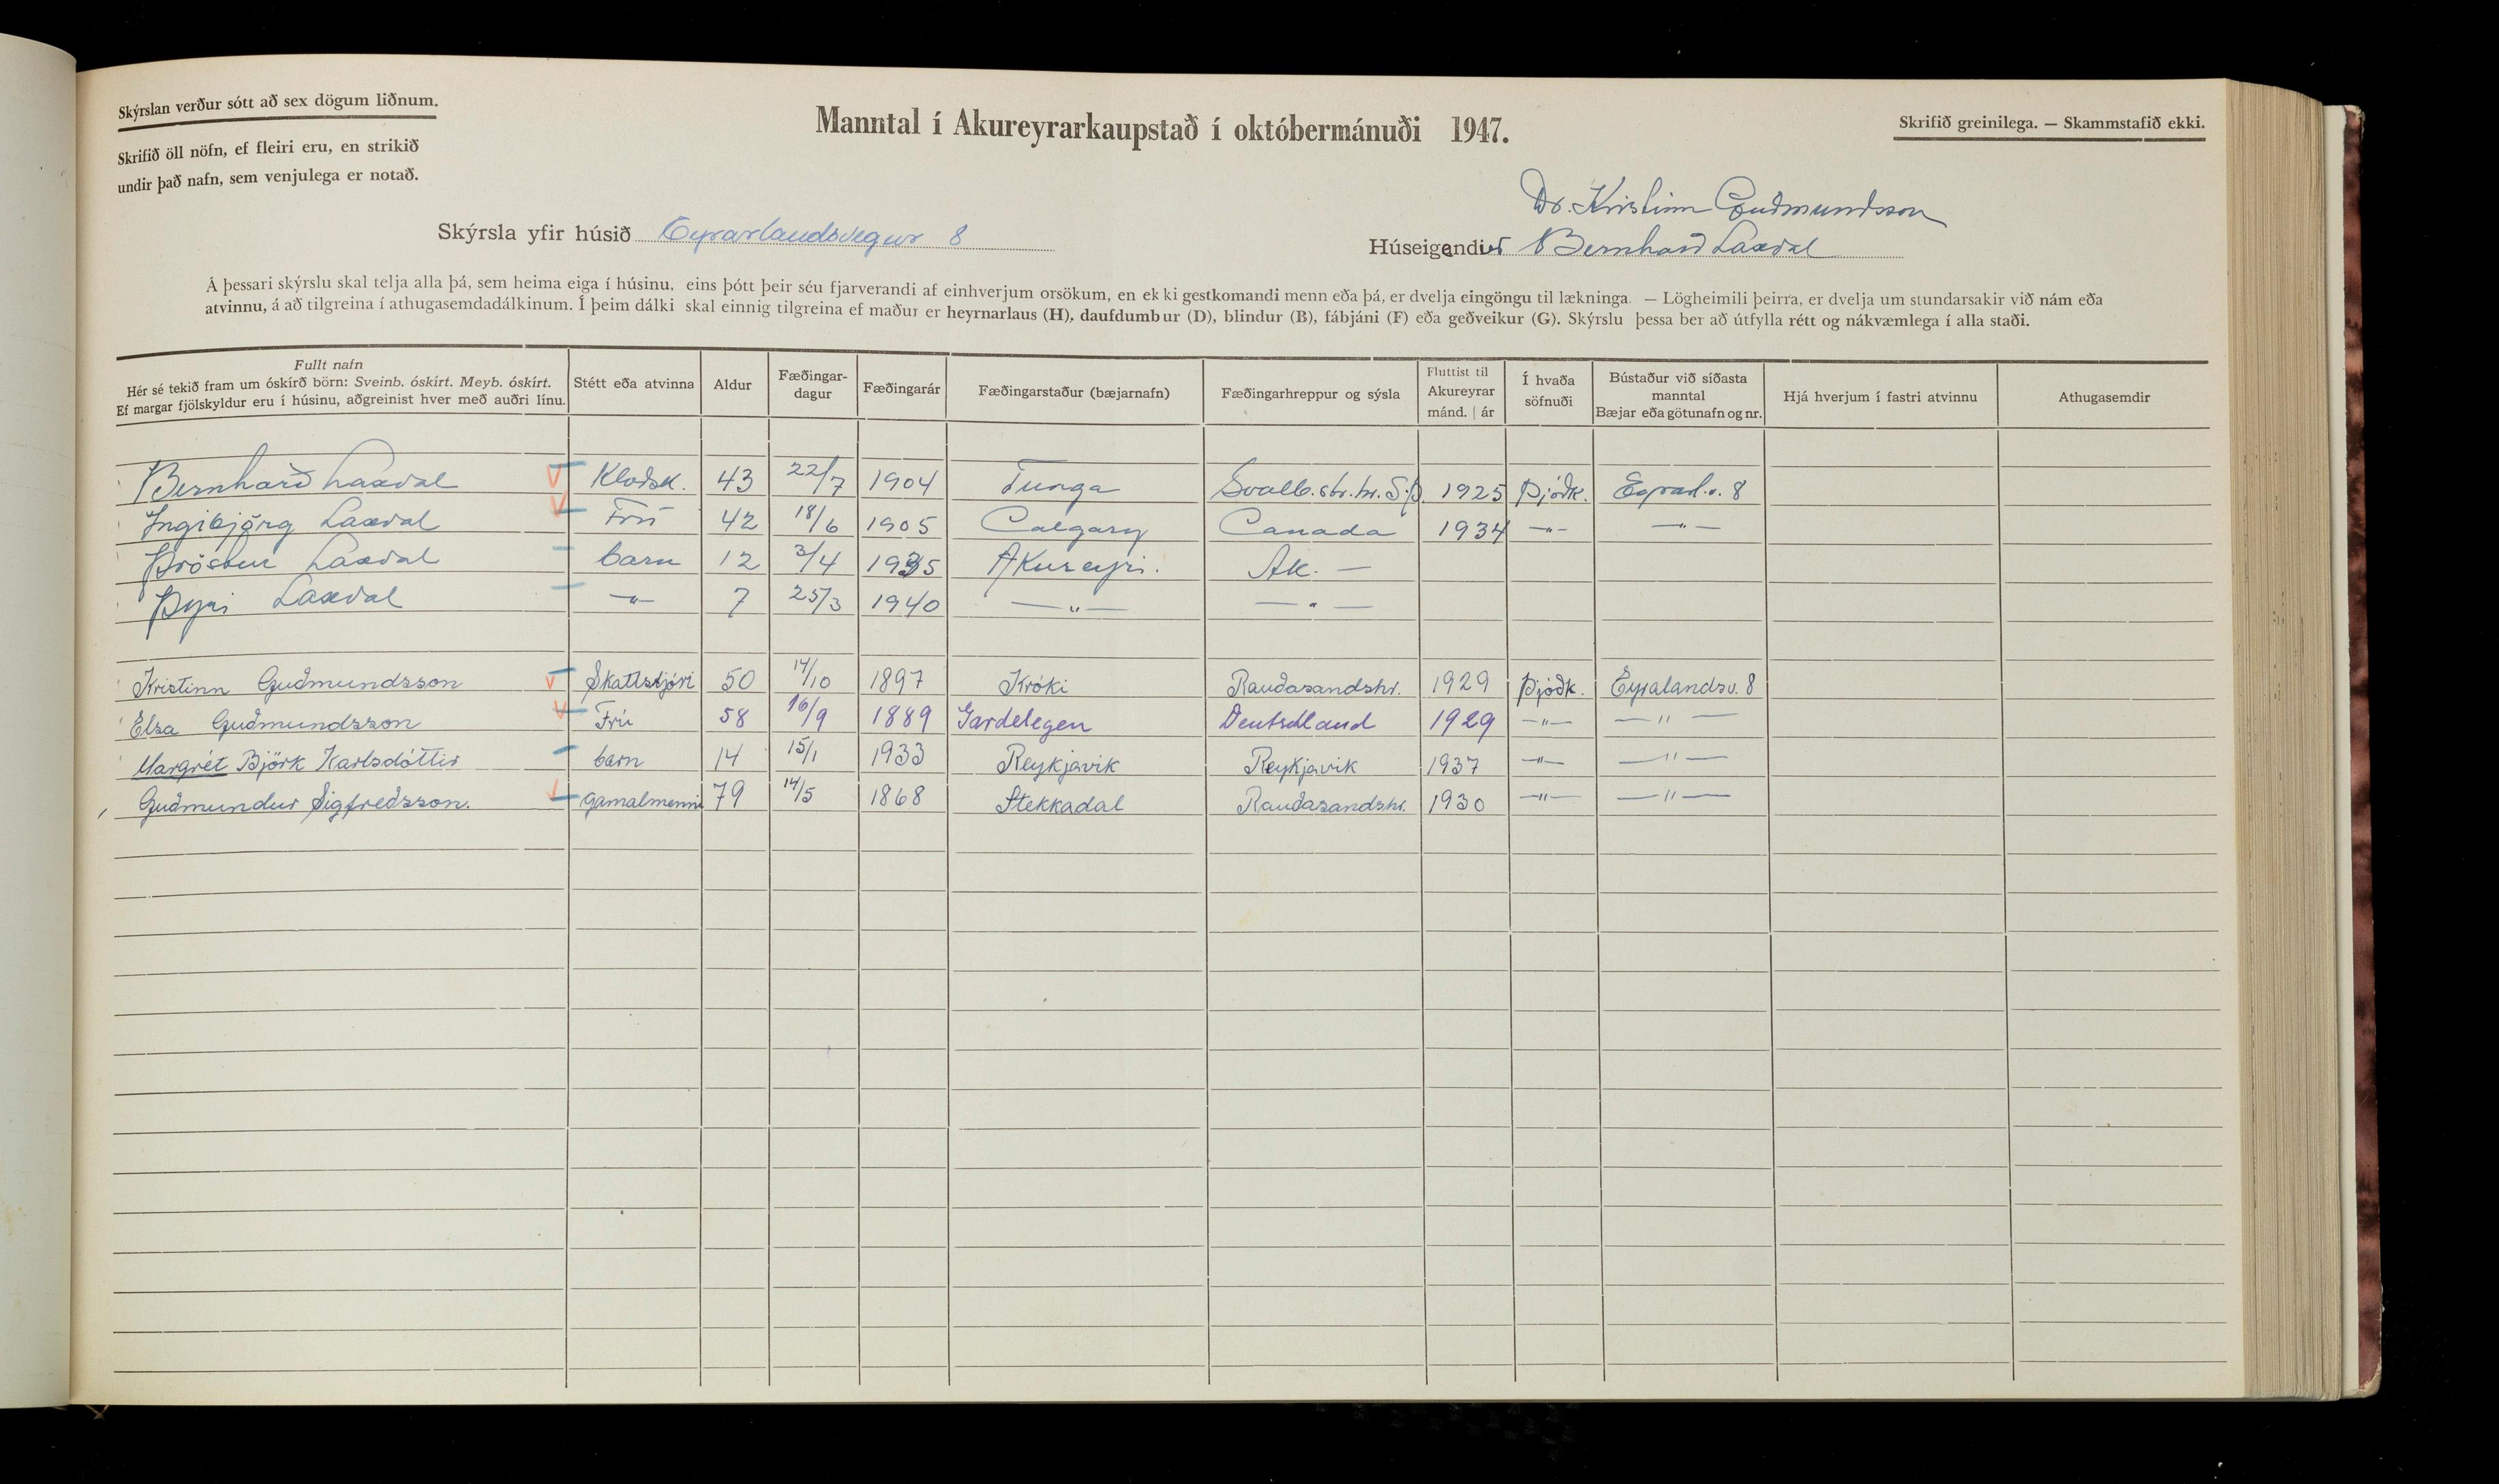 Skýrslan verður sótt að sex dögum liðnum.
Skrifið öll nöfn, ef fleiri eru, en strikið
undir það nafn, sem venjulega er notað.
Manntal í Akureyrarkaupstað í októbermánuði 1947.
Skrifið greinilega. — Skammstafið ekki.
Dr. Kristinn Guðmundsson
Skýrsla yfir húsið Eyrarlandsvegur 8
Húseigendur Bernharð Laxdal
Á þessari skýrslu skal telja alla þá, sem heima eiga í húsinu, eins þótt þeir séu fjarverandi af einhverjum orsökum, en ekki gestkomandi menn eða þá, er dvelja eingöngu til lækninga. — Lögheimili þeirra, er dvelja um stundarsakir við nám eða
atvinnu, á að tilgreina í athugasemdadálkinum. Í þeim dálki skal einnig tilgreina ef maður er heyrnarlaus (H), daufdumbur (D), blindur (B), fábjáni (F) eða geðveikur (G). Skýrslu þessa ber að útfylla rétt og nákvæmlega í alla staði.
Fullt nafn
Hér sé tekið fram um óskírð börn: Sveinb. óskírt. Meyb. óskírt.
Ef margar fjölskyldur eru í húsinu, aðgreinist hver með auðri línu.
Stétt eða atvinna
Aldur
Fæðingar-
dagur
Fæðingarár
Fæðingarstaður (bæjarnafn)
Fæðingarhreppur og sýsla
Fluttist til
Akureyrar
mánd. | ár
Í hvaða
söfnuði
Bústaður við síðasta
manntal
Bæjar eða götunafn og nr.
Hjá hverjum í fastri atvinnu
Athugasemdir
Bernharð Laxdal V Klæðsk. 43 22/7 1904 Tunga Svalb.str.hr. S.Þ. 1925 Þjóðk. Eyrarl.v. 8
Ingibjörg Laxdal V Frú 42 18/6 1905 Calgary Canada 1934 —"— —"—
Þröstur Laxdal barn 12 3/4 1935 Akureyri. Ak. —
Þyri Laxdal —"— 7 25/3 1940 —"— —"—
Kristinn Guðmundsson V Skattstjóri 50 14/10 1897 Króki Rauðasandshr. 1929 Þjóðk. Eyralandsv. 8
Elsa Guðmundsson V Frú 58 16/9 1889 Gardelegen Deutschland 1929 —"— —"—
Margrét Björk Karlsdóttir barn 14 15/1 1933 Reykjavik Reykjavik 1937 —"— —"—
Guðmundur Sigfreðsson. V gamalmenni 79 14/5 1868 Stekkadal Rauðasandshr. 1930 —"— —"—